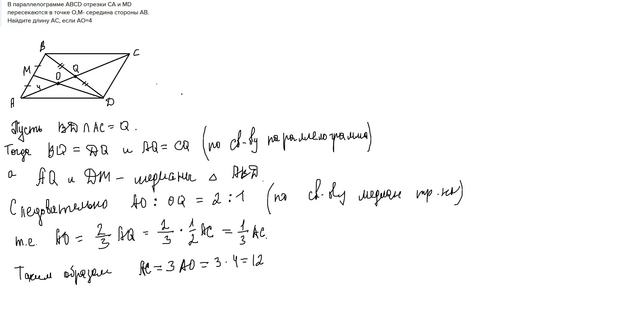 В параллелограмме ABCD отрезки CA и MD
пересекаются в точке O,M- середина стороны AB.
Найдите длину AC, если AO=4
B
C
M
O
Q
4
A
D
Пусть BD ∩ AC = Q.
Тогда BQ = DQ и AQ = CQ (по св-ву параллелограмма)
а AQ и DM – медианы △ ABD.
Следовательно AO : OQ = 2 : 1 (по св-ву медиан тр-ка)
т.е. AO = 2/3 AQ = 2/3 · 1/2 AC = 1/3 AC.
Таким образом AC = 3 AO = 3 · 4 = 12